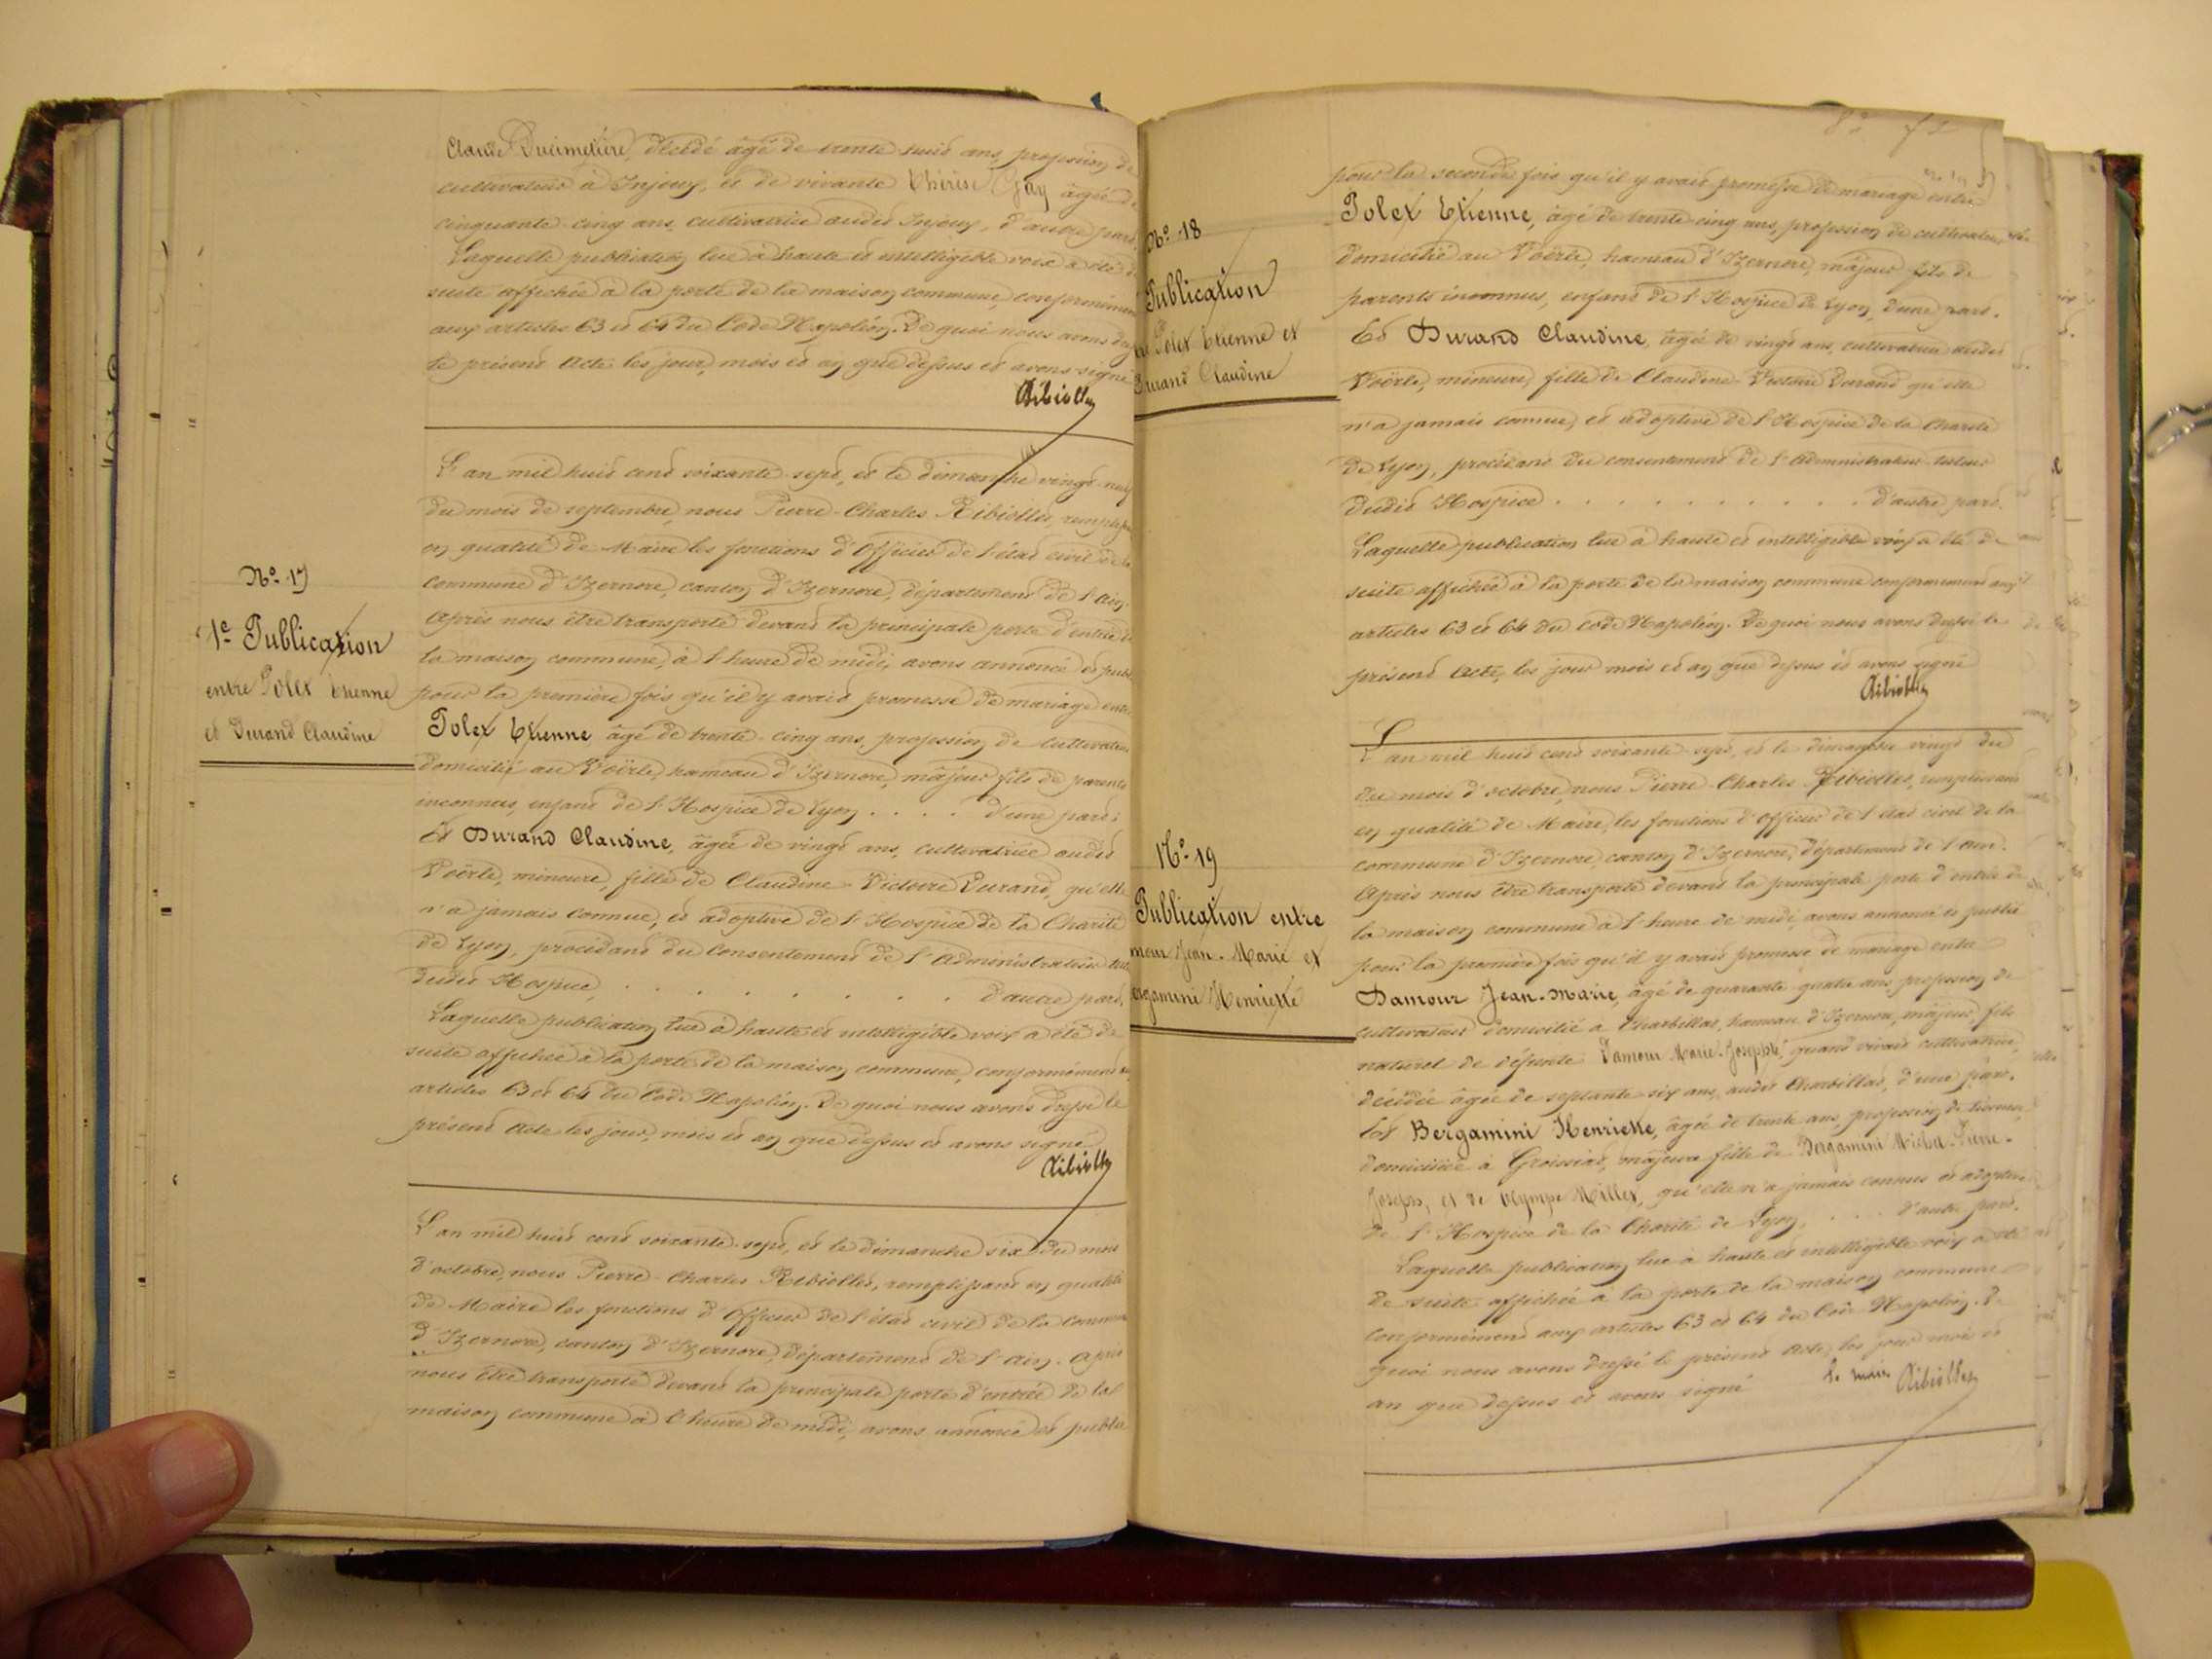 Claude Ducimetière, décédé âgé de trente huit ans, profession de
cultivateur à Injoux, et de vivante Thérèse Gay âgée de
cinquante cinq ans, cultivatrice audit Injoux, d'autre part.
Laquelle publication lue à haute et intelligible voix a été de
suite affichée à la porte de la maison commune, conformément
aux articles 63 et 64 du Code Napoléon. De quoi nous avons
le présent Acte les jour, mois et an que dessus et avons signé
Ribiollet
N° 17
1e Publication
entre Polex Etienne
et Durand Claudine
L'an mil huit cent soixante sept, et le dimanche vingt neuf
du mois de septembre, nous Pierre-Charles Ribiollet, remplissant
en qualité de Maire les fonctions d'Officier de l'état civil de la
commune d'Izernore, canton d'Izernore, département de l'Ain.
Après nous être transporté devant la principale porte d'entrée de
la maison commune, à l'heure de midi, avons annoncé et publié
pour la première fois qu'il y avait promesse de mariage entre
Polex Etienne âgé de trente-cinq ans, profession de cultivateur
domicilié au Voërle, hameau d'Izernore, majeur fils de parents
inconnus, enfant de l'Hospice de Lyon . . . . d'une part;
Et Durand Claudine, âgée de vingt ans, cultivatrice audit
Voërle, mineure, fille de Claudine-Victoire Durand, qu'elle
n'a jamais connue, et adoptive de l'Hospice de la Charité
de Lyon, procédant du consentement de l'Administrateur
dudit Hospice, . . . . . . . . . d'autre part.
Laquelle publication lue à haute et intelligible voix a été de
suite affichée à la porte de la maison commune, conformément aux
articles 63 et 64 du Code Napoléon. De quoi nous avons dressé le
présent Acte les jour, mois et an que dessus et avons signé
Ribiollet
L'an mil huit cent soixante-sept, et le dimanche six du mois
d'octobre, nous Pierre-Charles Ribiollet, remplissant en qualité
de Maire les fonctions d'Officier de l'état civil de la commune
d'Izernore, canton d'Izernore, département de l'Ain. Après
nous être transporté devant la principale porte d'entrée de la
maison commune à l'heure de midi, avons annoncé et publié
N° 18
Publication
Polex Etienne et
Durand Claudine
pour la seconde fois qu'il y avait promesse de mariage entre
Polex Etienne, âgé de trente cinq ans, profession de cultivateur
domicilié au Voërle, hameau d'Izernore, majeur fils de
parents inconnus, enfant de l'Hospice de Lyon, d'une part.
Et Durand Claudine, âgée de vingt ans, cultivatrice audit
Voërle, mineure, fille de Claudine-Victoire Durand qu'elle
n'a jamais connue, et adoptive de l'Hospice de la Charité
de Lyon, procédant du consentement de l'Administrateur tuteur
dudit Hospice . . . . . . . . . . d'autre part.
Laquelle publication lue à haute et intelligible voix a été de
suite affichée à la porte de la maison commune conformément aux
articles 63 et 64 du Code Napoléon. De quoi nous avons dressé le
présent Acte, les jour mois et an que dessus et avons signé
Ribiollet
N° 19
Publication entre
Jean-Marie et
Henriette
L'an mil huit cent soixante sept, et le dimanche vingt du
du mois d'octobre, nous Pierre-Charles Ribiollet, remplissant
en qualité de Maire, les fonctions d'officier de l'état civil de la
commune d'Izernore, canton d'Izernore, département de l'Ain.
Après nous être transporté devant la principale porte d'entrée de
la maison commune à l'heure de midi, avons annoncé et publié
pour la première fois qu'il y avait promesse de mariage entre
Damour Jean-Marie, âgé de quarante quatre ans, profession de
cultivateur domicilié à Charbillat, hameau d'Izernore, majeur, fils
naturel de défunte Damour Marie-Josephte, quand vivait cultivatrice,
décédée âgée de septante six ans, audit Charbillat, d'une part.
Et Bergamini Henriette, âgée de trente ans, profession de
domiciliée à Groissiat, majeure fille de Bergamini Michel-Pierre-
Joseph, et de Olympe Millet, qu'elle n'a jamais connus et adoptive
de l'Hospice de la Charité de Lyon, . . . d'autre part.
Laquelle publication lue à haute et intelligible voix a été
de suite affichée à la porte de la maison commune
conformément aux articles 63 et 64 du Code Napoléon. De
quoi nous avons dressé le présent Acte, les jour mois et
an que dessus et avons signé
le maire Ribiollet